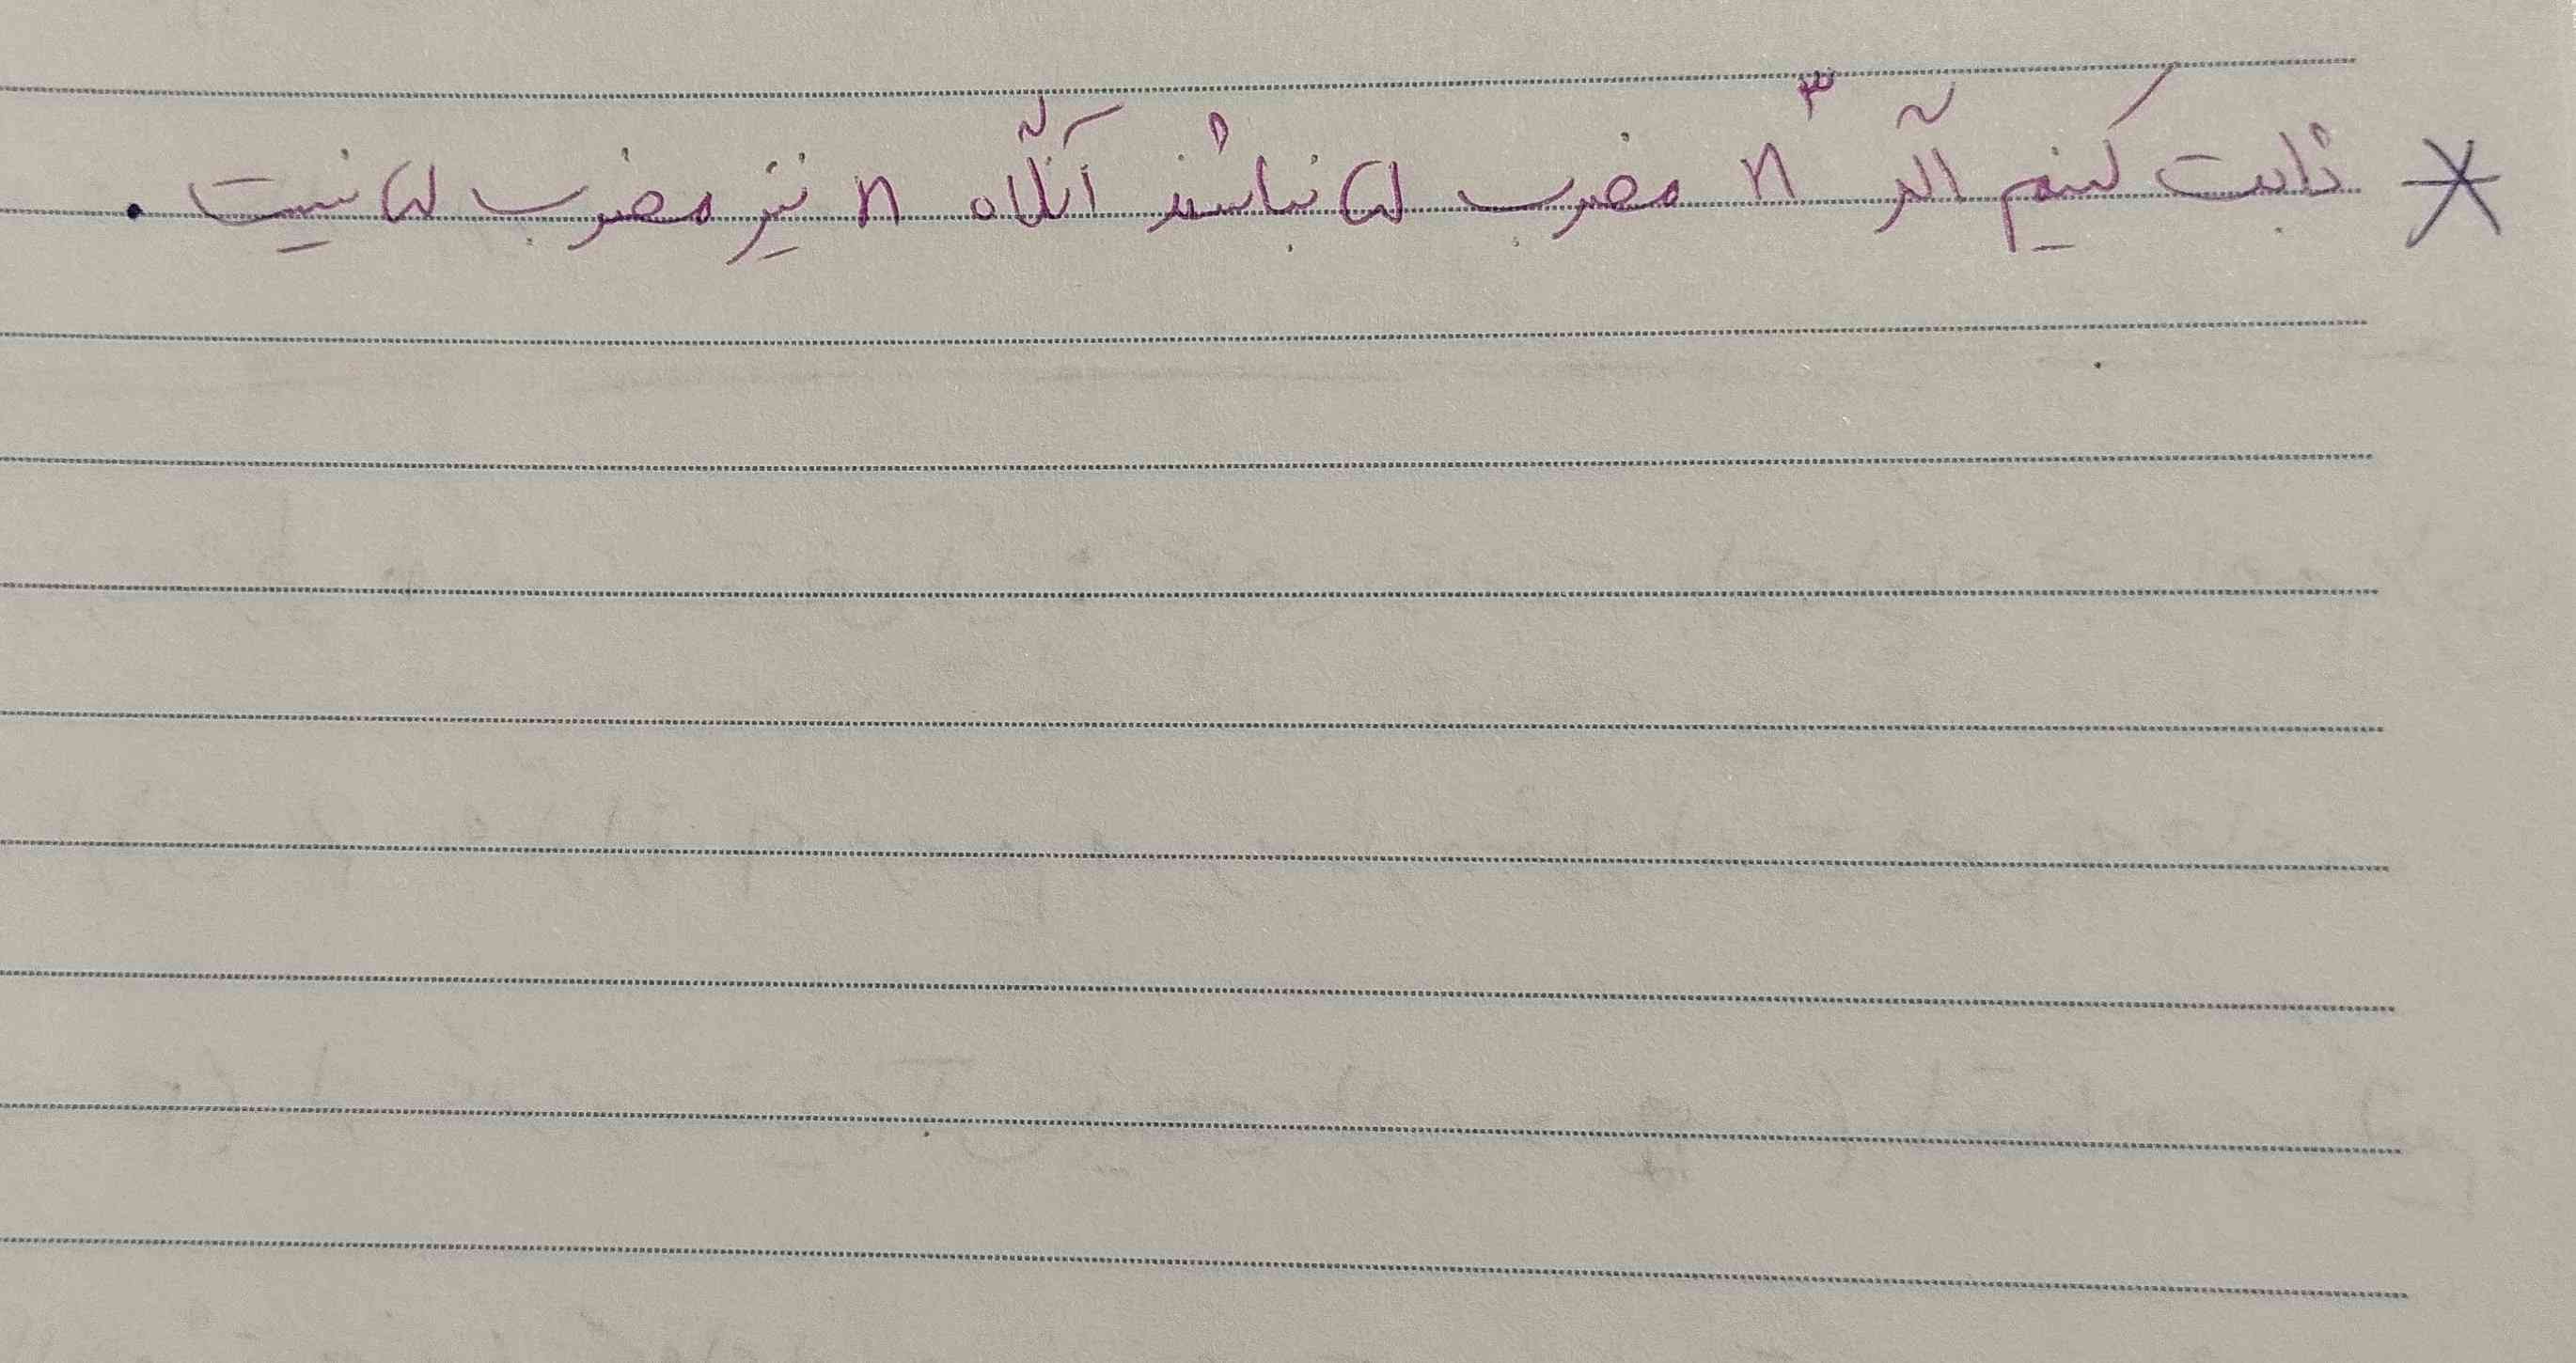 * ثابت کنیم اگر n^۳ مضرب ۵ نباشد آنگاه n نیز مضرب ۵ نیست .